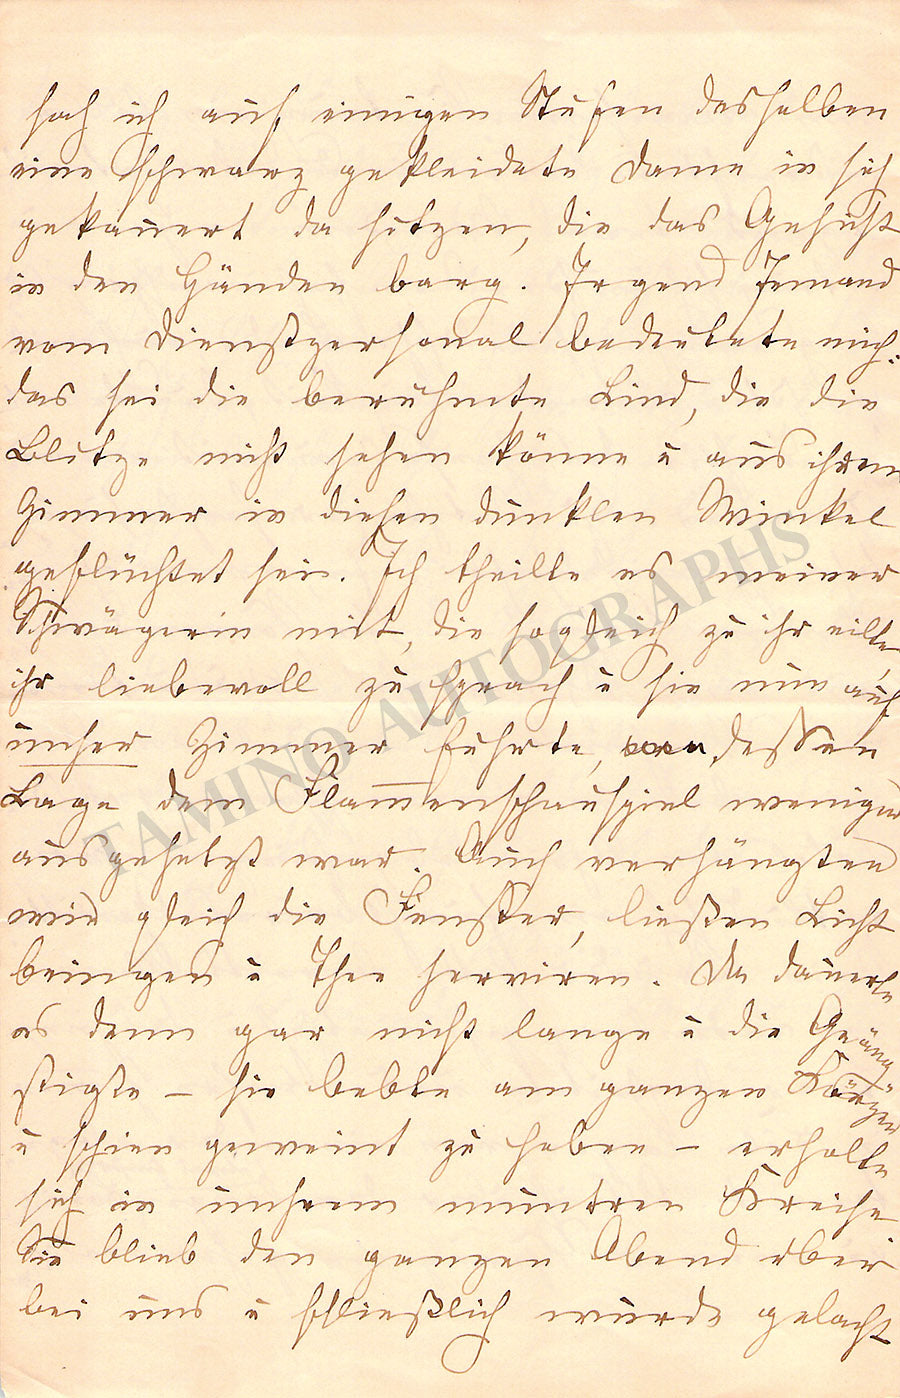 sah ich auf einigen Stufen desselben
eine schwarz gekleidete Dame in sich
gekauert da sitzen, die das Gesicht
in den Händen barg. Irgend Jemand
vom Dienstpersonal bedeutete mich:
das sei die berühmte Lind, die die
Blitze nicht sehen könne u aus ihrem
Zimmer in diesen dunklen Winkel
geflüchtet sei. Ich theilte es meiner
Schwägerin mit, die sogleich zu ihr eilte,
ihr liebevoll zusprach u sie nun auf
unser Zimmer führte, dessen
Lage dem Flammenschauspiel weniger
ausgesetzt war. Auch verhängten
wir gleich die Fenster, ließen Licht
bringen u Thee serviren. Da dauerte
es denn gar nicht lange u die Geäng
stigte – sie bebte am ganzen Körper
u schien geweint zu haben – erholte
sich in unsrem muntren Kreise
Sie blieb den ganzen Abend über
bei uns u schließlich wurde gelacht
TAMINO AUTOGRAPHS